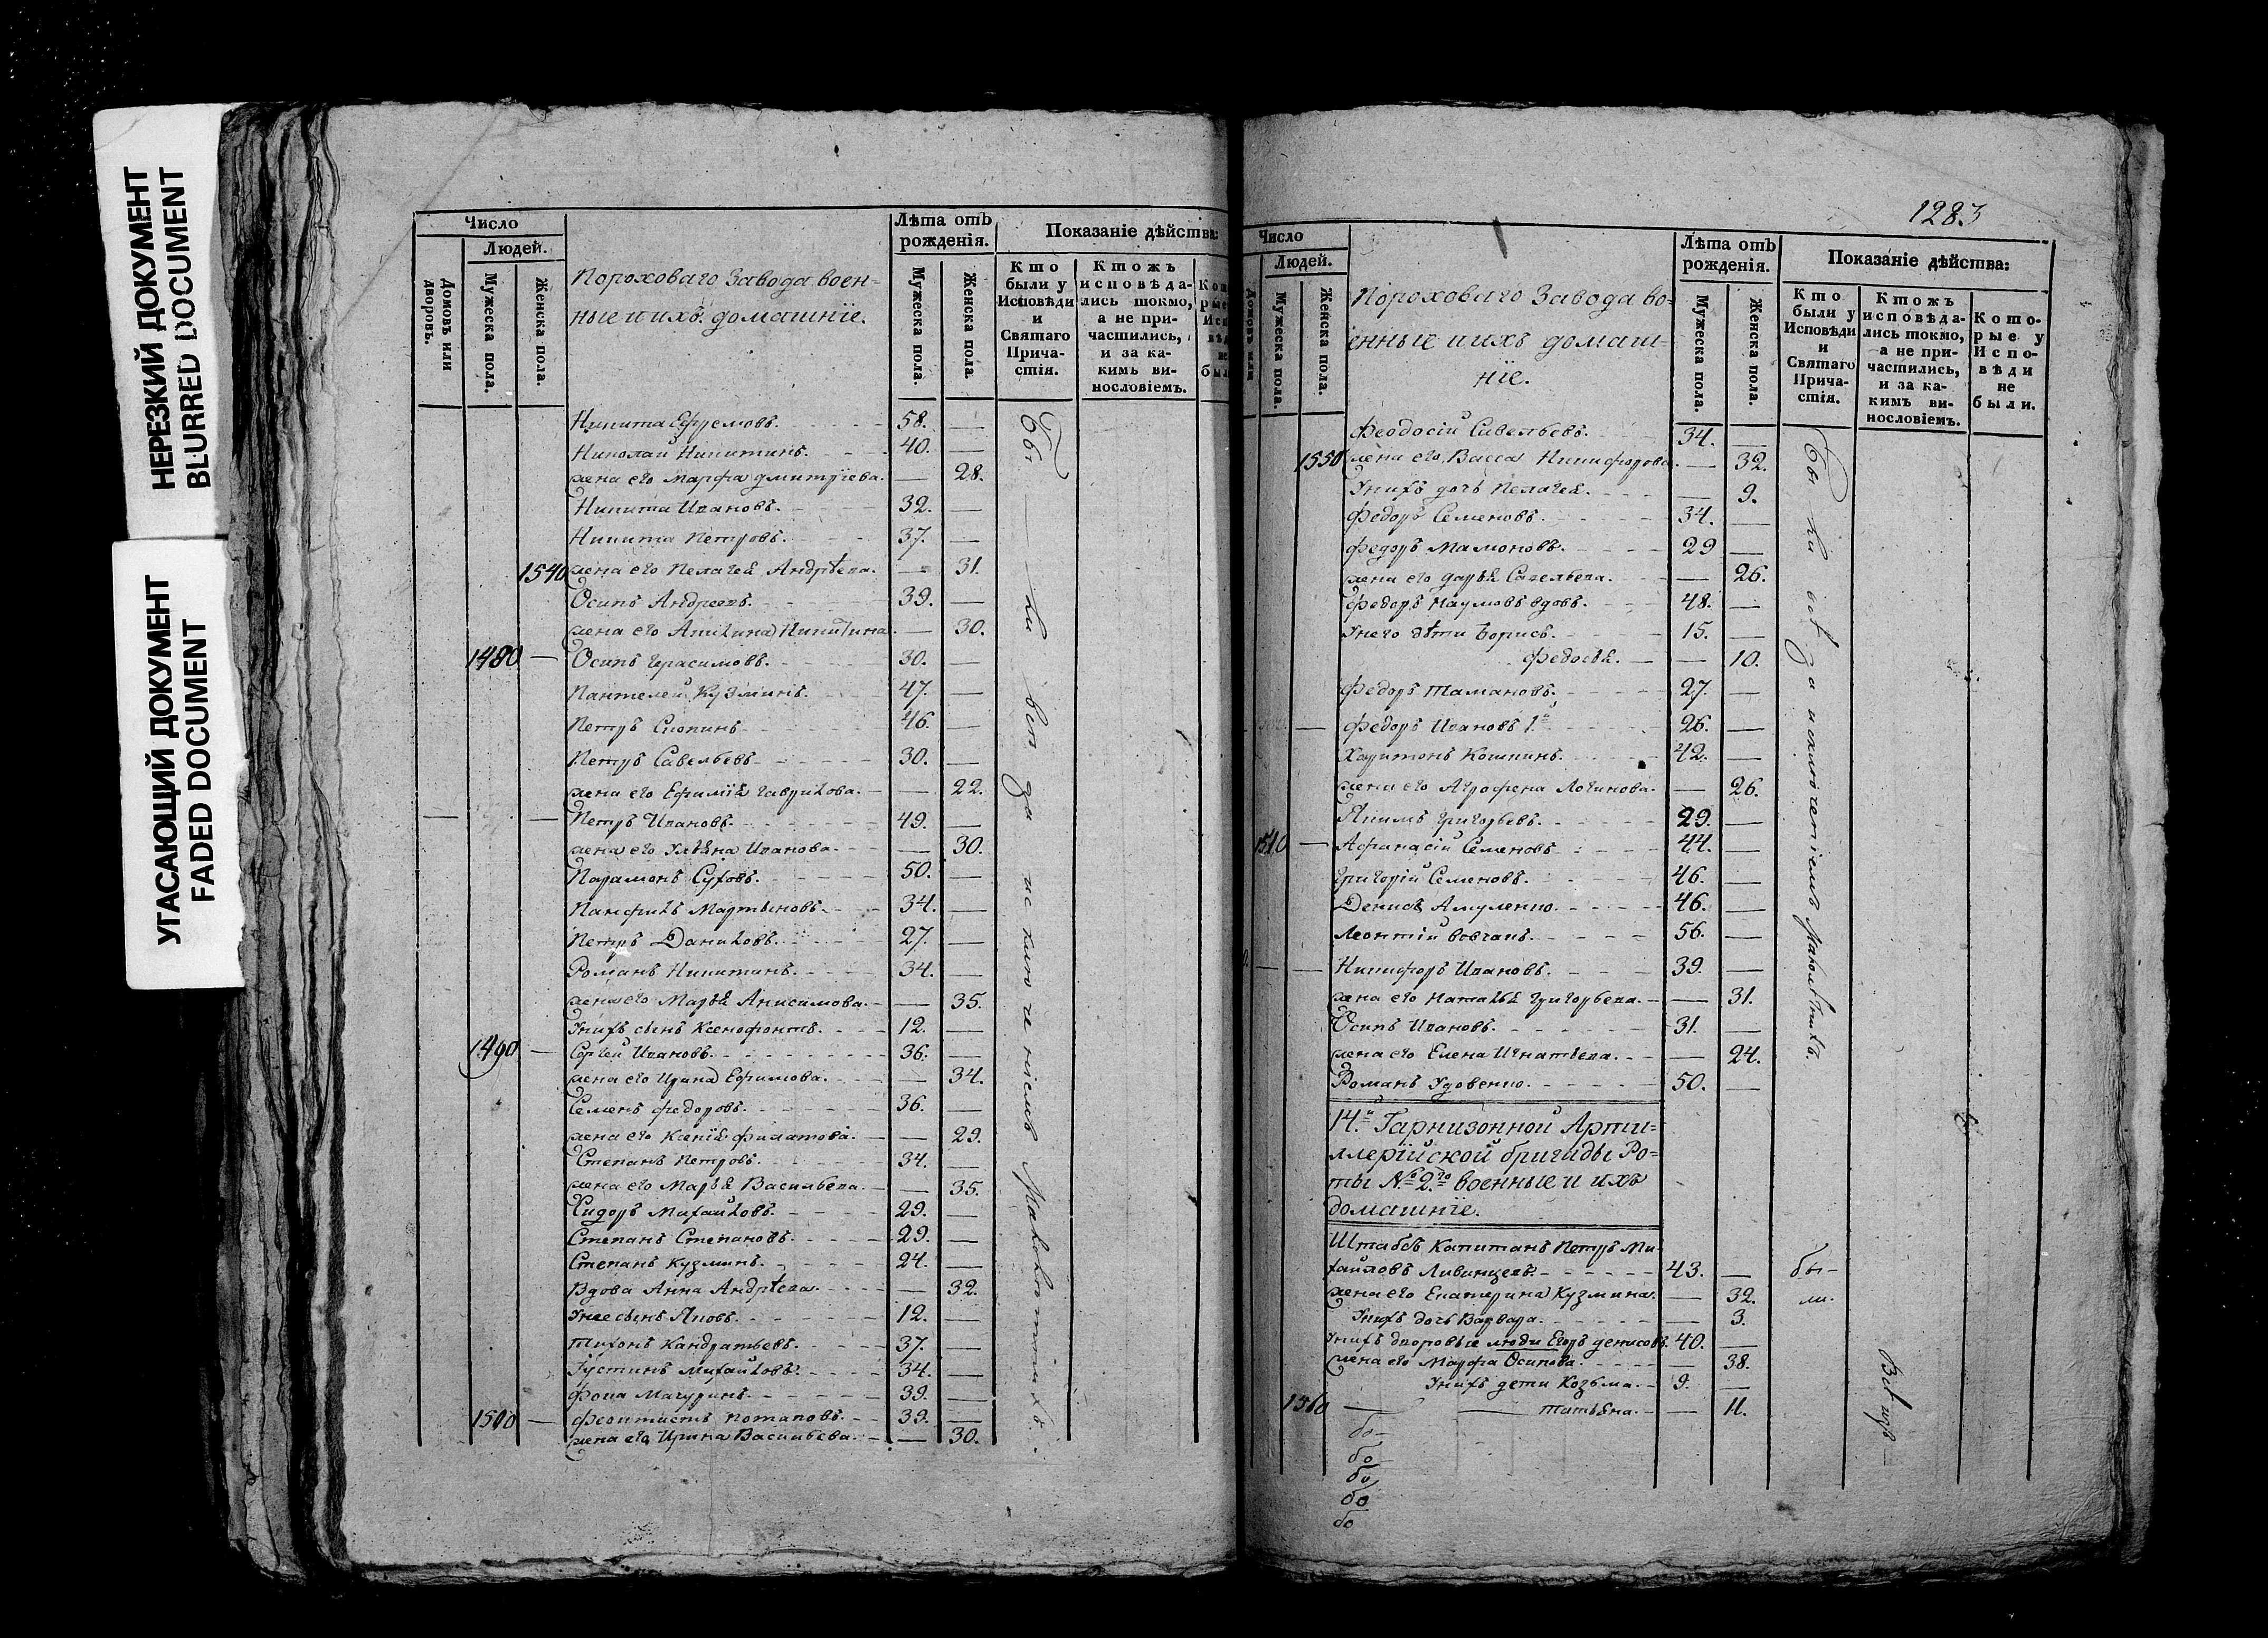 НЕРЕЗКИЙ ДОКУМЕНТ
BLURRED DOCUMENT
УГАСАЮЩИЙ ДОКУМЕНТ
FADED DOCUMENT
Число
Людей.
Домовъ или дворовъ.
Мужеска пола.
Женска пола.
Пороховаго Завода воен-
ные и ихъ домашніе.
Лѣта отъ рожденія.
Мужеска пола.
Женска пола.
Показаніе дѣйства:
Кто были у Исповѣди и Святаго Причастія.
Ктожъ исповѣдались токмо, а не причастились, и за какимъ винословіемъ.
Никита Ефремовъ. 58. —
Николай Никитинъ. 40. —
жена его Марфа Дмитріева. — 28.
Никита Ивановъ. 32. —
Никита Петровъ. 37. —
1540 жена его Пелагея Андрѣева. — 31.
Осипъ Андреевъ. 39. —
жена его Никитина — 30.
1480 — Осипъ Герасимовъ. 30. —
Пантелей Кузминъ. 47. —
Петръ 46. —
Петръ Савельевъ 30. —
жена его Ефимія Гаврилова. — 22.
— — Петръ Ивановъ. 49. —
жена его Ульяна Иванова. — 30.
Парамонъ Суховъ. 50. —
Панфилъ Мартыновъ. 34. —
Петръ Даниловъ. 27. —
Романъ Никитинъ. 34. —
жена его Марья Анисимова. — 35.
У нихъ сынъ Ксенофонтъ. 12. —
1490 — Сергей Ивановъ. 36. —
жена его Ирина Ефимова. — 34.
Семенъ Федоровъ. 36. —
жена его Ксенія Филатова. — 29.
Степанъ Петровъ. 34. —
жена его Марья Васильева. — 35.
Сидоръ Михайловъ. 29. —
Степанъ Степановъ. 29. —
Степанъ Кузминъ. 24. —
Вдова Анна Андрѣева. — 32.
У нее сынъ Яковъ. 12. —
Тихонъ Кандратьевъ. 37. —
Устинъ Михайловъ. 34. —
Фока Мачуринъ. 39. —
1500 — Феоктистъ Потаповъ. 39. —
жена его Ирина Васильева. — 30.
Бы ли всѣ за исключеніемъ малолѣтнихъ.
1283
Число
Людей.
Домовъ или
Мужеска пола.
Женска пола.
Пороховаго Завода во-
енные и ихъ домаш-
ніе.
Лѣта отъ рожденія.
Мужеска пола.
Женска пола.
Показаніе дѣйства:
Кто были у Исповѣди и Святаго Причастія.
Ктожъ исповѣдались токмо, а не причастились, и за какимъ винословіемъ.
Которые у Исповѣди не были.
Феодосій Савельевъ. 34. —
1550 жена его Васса Никифорова. — 32.
У нихъ дочь Пелагея. — 9.
Федоръ Семеновъ. 34. —
Федоръ Мамоновъ. 29 —
жена его Дарья Савельева. — 26.
Федоръ Наумовъ вдовъ. 48. —
У него дѣти Борисъ. 15. —
Федосья. — 10.
Федоръ Тамановъ. 27. —
— Федоръ Ивановъ 1й 26. —
Харитонъ Кошкинъ. 42. —
жена его Агрофена Логинова. — 26.
Якимъ Григорьевъ. 29. —
1510 — Афанасій Семеновъ 44. —
Григорій Семеновъ. 46. —
Денисъ Амуленко. 46. —
Леонтій Вовчанъ. 56. —
— — Никифоръ Ивановъ. 39. —
жена его Наталья Григорьева. — 31.
Осипъ Ивановъ. 31. —
жена его Елена Игнатьева. — 24.
Романъ Удовенко. 50. —
Бы ли всѣ за исключеніемъ малолѣтнихъ.
14й Гарнизонной Арти-
ллерійской бригады Ро-
ты № 2го военные и ихъ
домашніе.
Штабсъ Капитанъ Петръ Ми-
хайловъ Ливинцевъ. 43. — бы-
жена его Екатерина Кузмина. — 32. ли.
У нихъ дочь Варвара. — 3.
У нихъ дворовые люди Егоръ Денисовъ. 40. —
жена его Марфа Осипова. — 38.
У нихъ дети Козьма. 9. —
1560 — Татьяна. — 11.
бо-
бо
бо
бо
бо